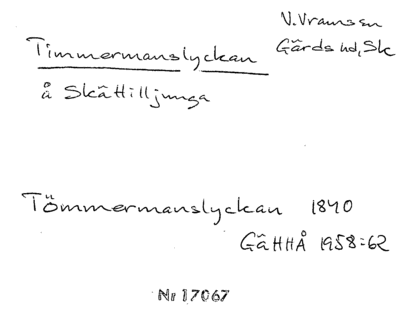 V. Vramssn
Gärds hd, Sk
Timmermanslyckan
å Skättilljunga
Tömmermanslyckan 1840
GäHHÅ 1958:62
Nr 17067